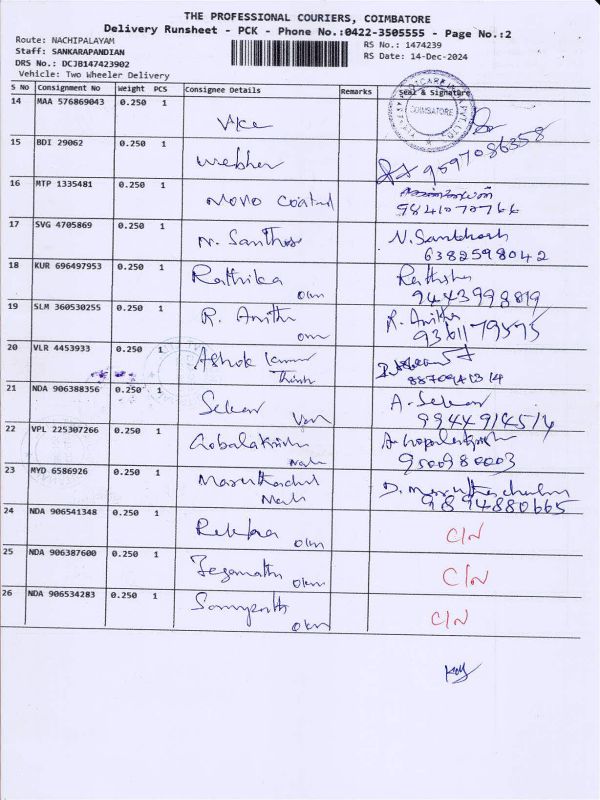 THE PROFESSIONAL COURIERS, COIMBATORE
Delivery Runsheet - PCK - Phone No.:0422-3505555 - Page No.:2
Route: NACHIPALAYAM
RS No.: 1474239
Staff: SANKARAPANDIAN
RS Date: 14-Dec-2024
DRS No.: DCJB147423902
Vehicle: Two Wheeler Delivery
S No Consignment No Weight PCS Consignee Details Remarks Seal & Signature
COIMBATORE
14 MAA 576869043 0.250 1
15 BDI 29062 0.250 1 9597086358
16 MTP 1335481 0.250 1 Novo
17 SVG 4705869 0.250 1 N. Santhosh N. Santhosh
6382598042
18 KUR 696497953 0.250 1 Rathika
okm 9443998819
19 SLM 360530255 0.250 1 R. Anitha R. Anitha
9361179575
20 VLR 4453933 0.250 1 Ashok Kumar
21 NDA 906388356 0.250 1 Sekar A. Sekar
9944914514
22 VPL 225307266 0.250 1 Gobalakrish
9500980003
23 MYD 6586926 0.250 1
9894880665
24 NDA 906541348 0.250 1 C/N
okm
25 NDA 906387600 0.250 1 C/N
okm
26 NDA 906534283 0.250 1 C/N
okm